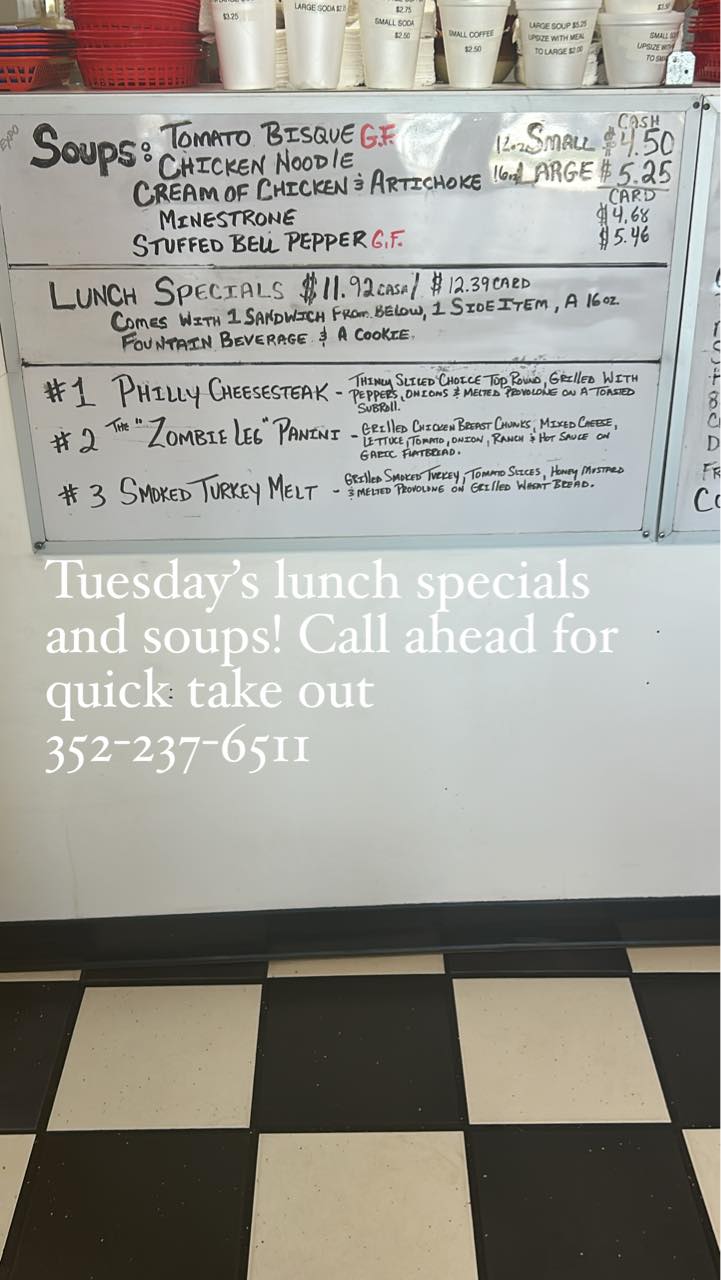 $3.25
LARGE SODA
$2.75
SMALL SODA
$2.50
SMALL COFFEE
$2.50
LARGE SOUP $5.25
UPSIZE WITH MEAL
TO LARGE $2.00
UPSIZE WITH
EXPO
SOUPS: TOMATO BISQUE G.F.
CHICKEN NOODLE
CREAM OF CHICKEN & ARTICHOKE
MINESTRONE
STUFFED BELL PEPPER G.F.
CASH
12oz SMALL $4.50
16oz LARGE $5.25
CARD
$4.68
$5.46
LUNCH SPECIALS $11.92 CASH / $12.39 CARD
COMES WITH 1 SANDWICH FROM BELOW, 1 SIDE ITEM, A 16oz
FOUNTAIN BEVERAGE & A COOKIE.
#1 PHILLY CHEESESTEAK - THINLY SLICED CHOICE TOP ROUND, GRILLED WITH
PEPPERS, ONIONS & MELTED PROVOLONE ON A TOASTED
SUBROLL.
#2 THE "ZOMBIE LEG" PANINI - GRILLED CHICKEN BREAST CHUNKS, MIXED CHEESE,
LETTUCE, TOMATO, ONION, RANCH & HOT SAUCE ON
GARLIC FLATBREAD.
#3 SMOKED TURKEY MELT - GRILLED SMOKED TURKEY, TOMATO SLICES, HONEY MUSTARD
& MELTED PROVOLONE ON GRILLED WHEAT BREAD.
Tuesday's lunch specials
and soups! Call ahead for
quick take out
352-237-6511